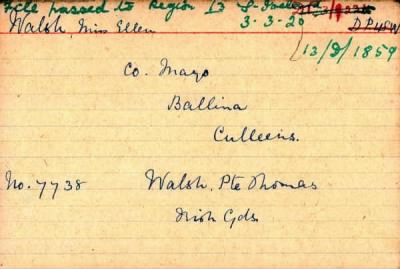 File passed to Region 13 S. Ireland
3.3.20
Walsh, Miss Ellen
13/D/1859
Co. Mayo
Ballina
Culleens.
No. 7738 Walsh. Pte Thomas
Irish Gds.